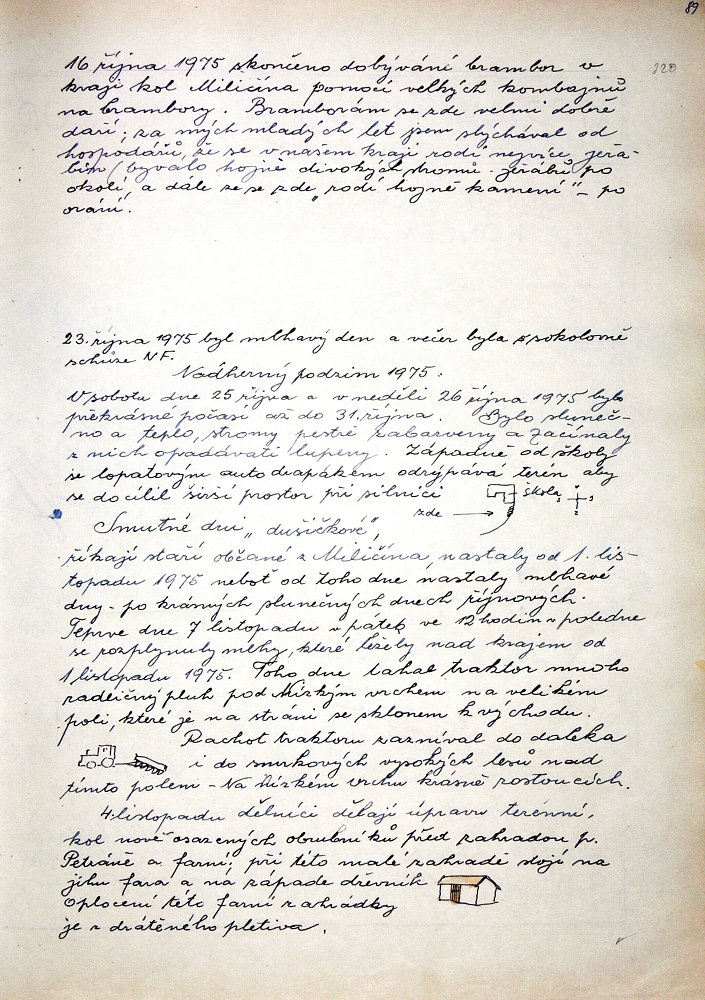 89
220
16 října 1975 skončeno dobývání brambor v
kraji kol Miličína pomocí velkých kombajnů
na brambory. Bramborám se zde velmi dobře
daří; za mých mladých let jsem slýchával od
hospodářů, že se v našem kraji rodí nejvíce jeřa-
bin (bývalo hojně divokých stromů - jeřábů po
okolí, a dále že se zde „rodí hojně kamení" - po
orání.
23. října 1975 byl mlhavý den a večer byla v sokolovně
schůze N F.
Nádherný podzim 1975.
V sobotu dne 25 října a v neděli 26 října 1975 bylo
překrásné počasí až do 31. října. Bylo sluneč-
no a teplo, stromy pestře zabarveny a začínaly
z nich opadávati lupeny. Západně od školy
se lopatovým autodrapákem odrýpává terén aby
se docílil širší prostor při silnici
škola
zde
Smutné dni „dušičkové",
říkají staří občané z Miličína, nastaly od 1. lis-
topadu 1975 neboť od toho dne nastaly mlhavé
dny - po krásných slunečných dnech říjnových.
Teprve dne 7 listopadu v pátek ve 12 hodin v poledne
se rozplynuly mlhy, které ležely nad krajem od
1 listopadu 1975. Toho dne tahal traktor mnoho
radličný pluh pod Nízkým vrchem na velikém
poli, které je na stráni se sklonem k východu.
Rachot traktoru zazníval do daleka
i do smrkových vysokých lesů nad
tímto polem - Na Nízkém vrchu krásně rostoucích.
4. listopadu dělníci dělají úpravu terénní,
kol nově osazených obrubníků před zahradou p.
Petráně a farní; při této malé zahradě stojí na
jihu fara a na západe dřevník
Oplocení této farní zahrádky
je z drátěného pletiva.